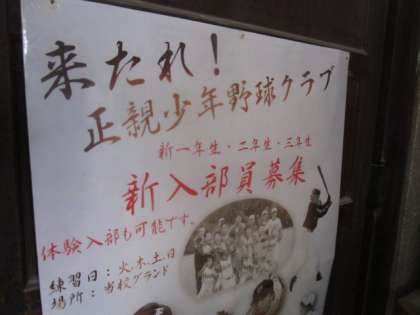 来たれ！
正親少年野球クラブ
新一年生・二年生・三年生
新入部員募集
体験入部も可能です。
練習日：火.木.土.日
場所：当校グランド